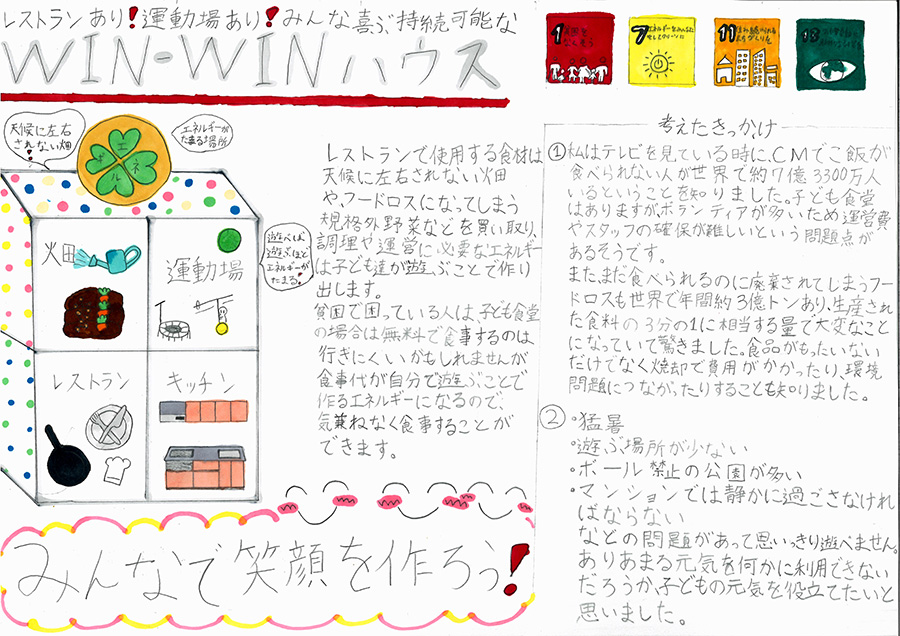 レストランあり！運動場あり！みんな喜ぶ持続可能な
WIN-WINハウス
1 貧困を
なくそう
7 エネルギーをみんなに
そしてクリーンに
11 住み続けられる
まちづくりを
13
天候に左右
されない畑
！
エネルギーが
たまる場所
エネルギー
畑
運動場
レストラン
キッチン
遊べば
遊ぶほど
エネルギーが
たまる！
レストランで使用する食材は
天候に左右されない畑
や、フードロスになってしまう
規格外野菜などを買い取り、
調理や運営に必要なエネルギー
は子ども達が遊ぶことで作り
出します。
貧困で困っている人は、子ども食堂
の場合は無料で食事するのは
行きにくいかもしれませんが
食事代が自分で遊ぶことで
作るエネルギーになるので、
気兼ねなく食事することが
できます。
みんなで笑顔を作ろう！
考えたきっかけ
①私はテレビを見ている時に、CMでご飯が
食べられない人が世界で約7億3300万人
いるということを知りました。子ども食堂
はありますが、ボランティアが多いため運営費
やスタッフの確保が難しいという問題点が
あるそうです。
また、まだ食べられるのに廃棄されてしまうフー
ドロスも世界で年間約13億トンあり、生産され
た食料の3分の1に相当する量で大変なこと
になっていて驚きました。食品がもったいない
だけでなく焼却で費用がかかったり、環境
問題につながったりすることも知りました。
②・猛暑
・遊ぶ場所が少ない
・ボール禁止の公園が多い
・マンションでは静かに過ごさなけれ
ばならない
などの問題があって思いっきり遊べません。
ありあまる元気を何かに利用できない
だろうか、子どもの元気を役立てたいと
思いました。